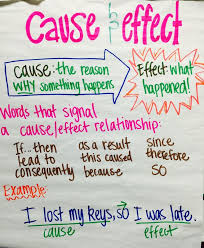 Cause & effect
Cause: the reason
WHY something happens
Effect: what
happened!
Words that signal
a cause/effect relationship:
If...then as a result since
lead to this caused therefore
consequently because so
Example:
I lost my keys, so I was late.
cause effect